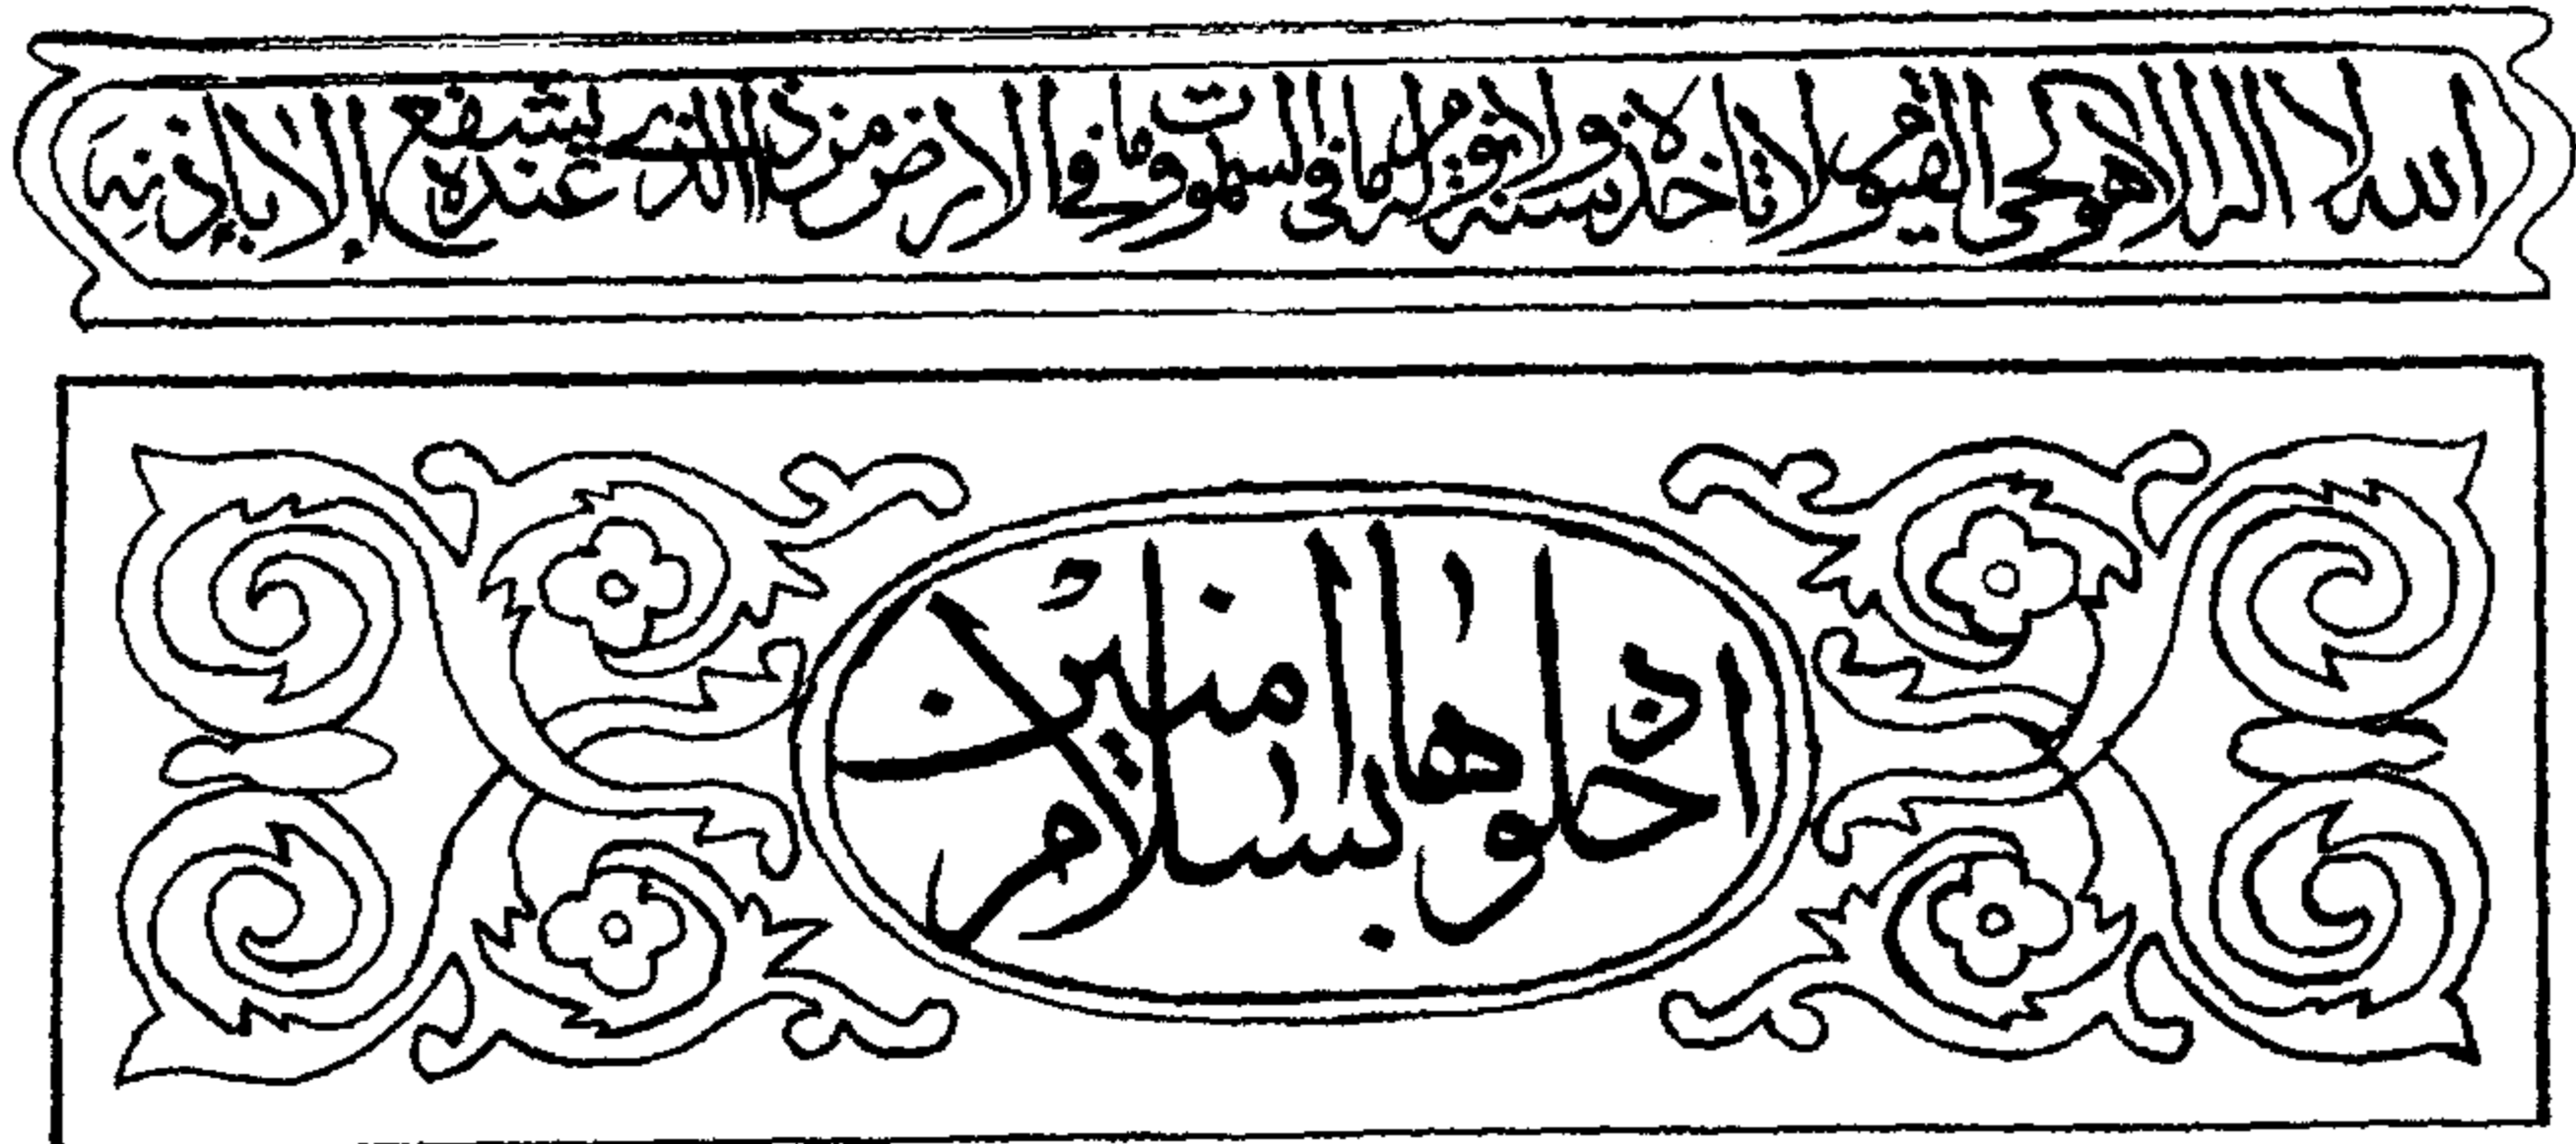 الله لا اله الا هو الحي القيوم لا تاخذه سنة ولا نوم له ما في السموات وما في الارض من ذا الذي يشفع عنده الا باذنه
ادخلوها بسلام امنين